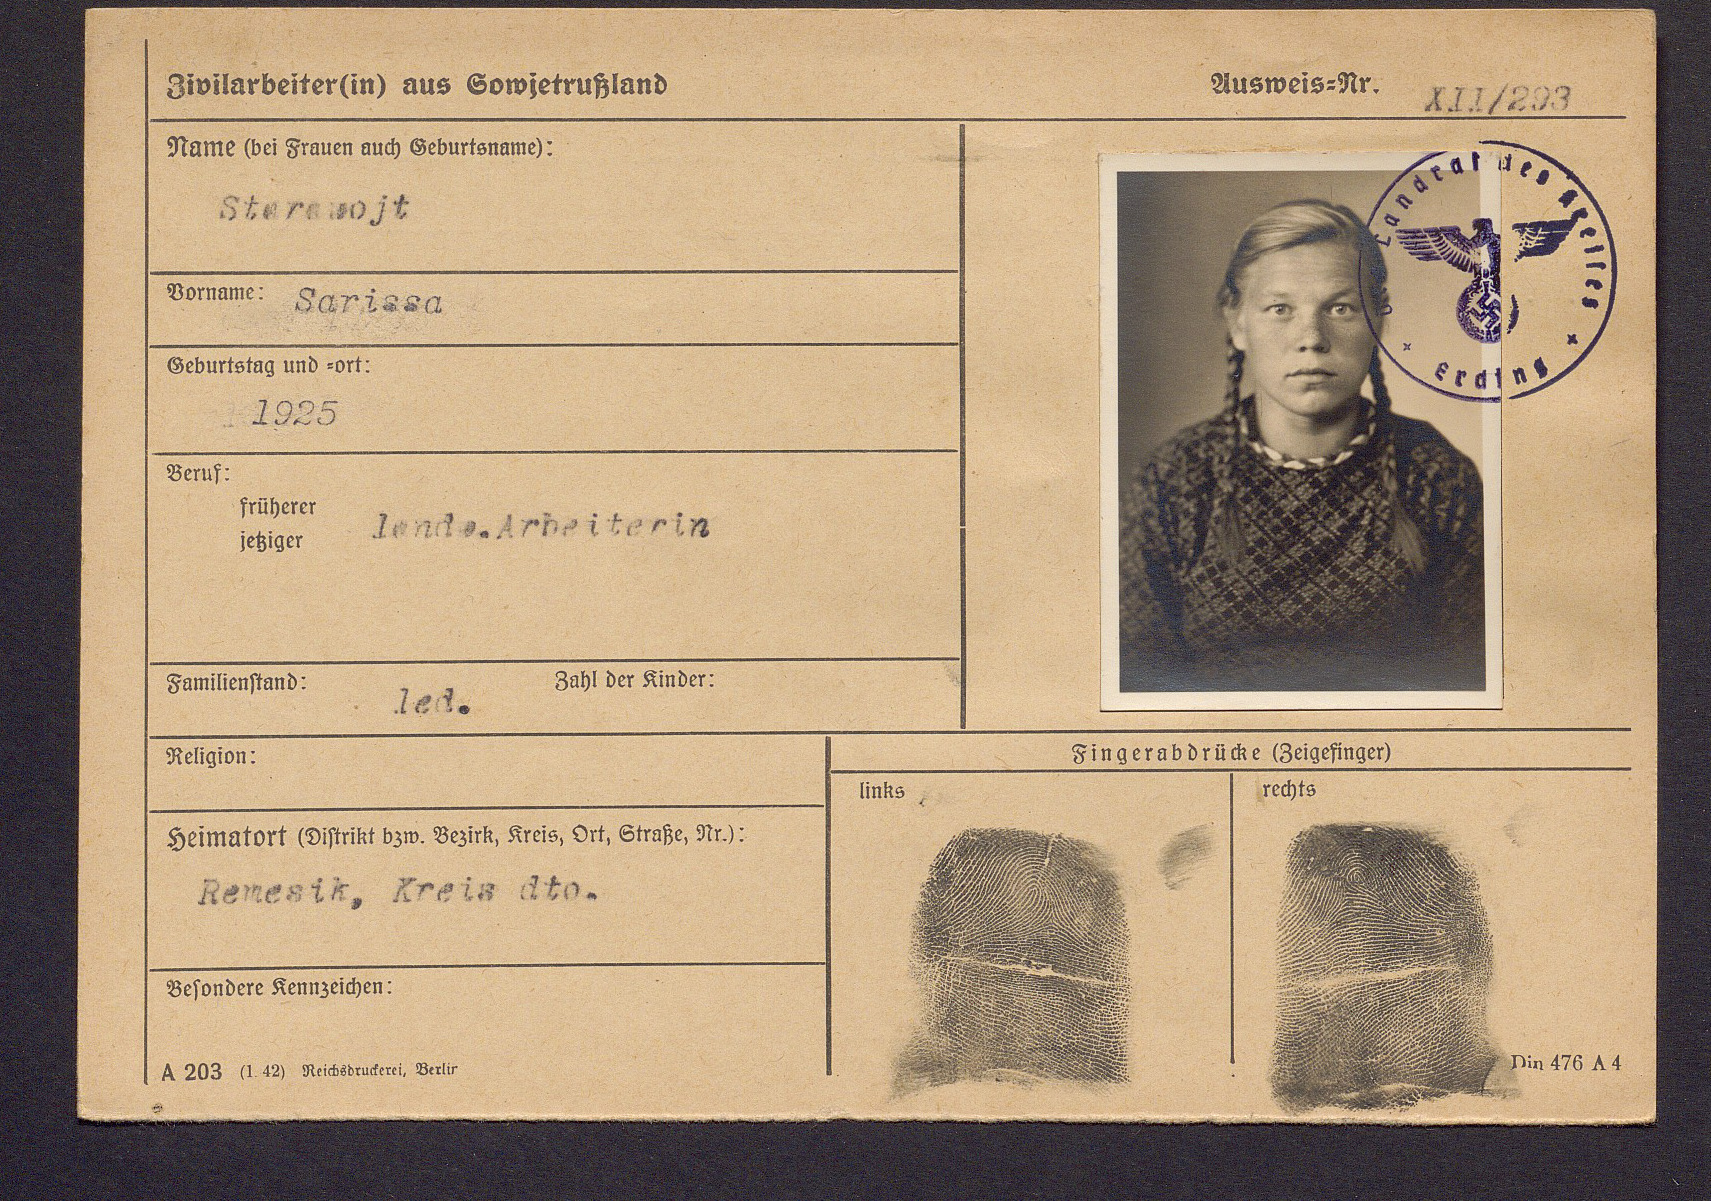 Zivilarbeiter(in) aus Sowjetrußland
Ausweis-Nr. XII/293
Name (bei Frauen auch Geburtsname):
Starawojt
Vorname: Sarissa
Geburtstag und -ort:
1925
Beruf:
früherer
jetziger
landw.Arbeiterin
Familienstand: led.
Zahl der Kinder:
Religion:
Heimatort (Distrikt bzw. Bezirk, Kreis, Ort, Straße, Nr.):
Remesik, Kreis dto.
Besondere Kennzeichen:
A 203 (1. 42) Reichsdruckerei, Berlin
Landrat des Kreises
Erding
Fingerabdrücke (Zeigefinger)
links
rechts
Din 476 A 4